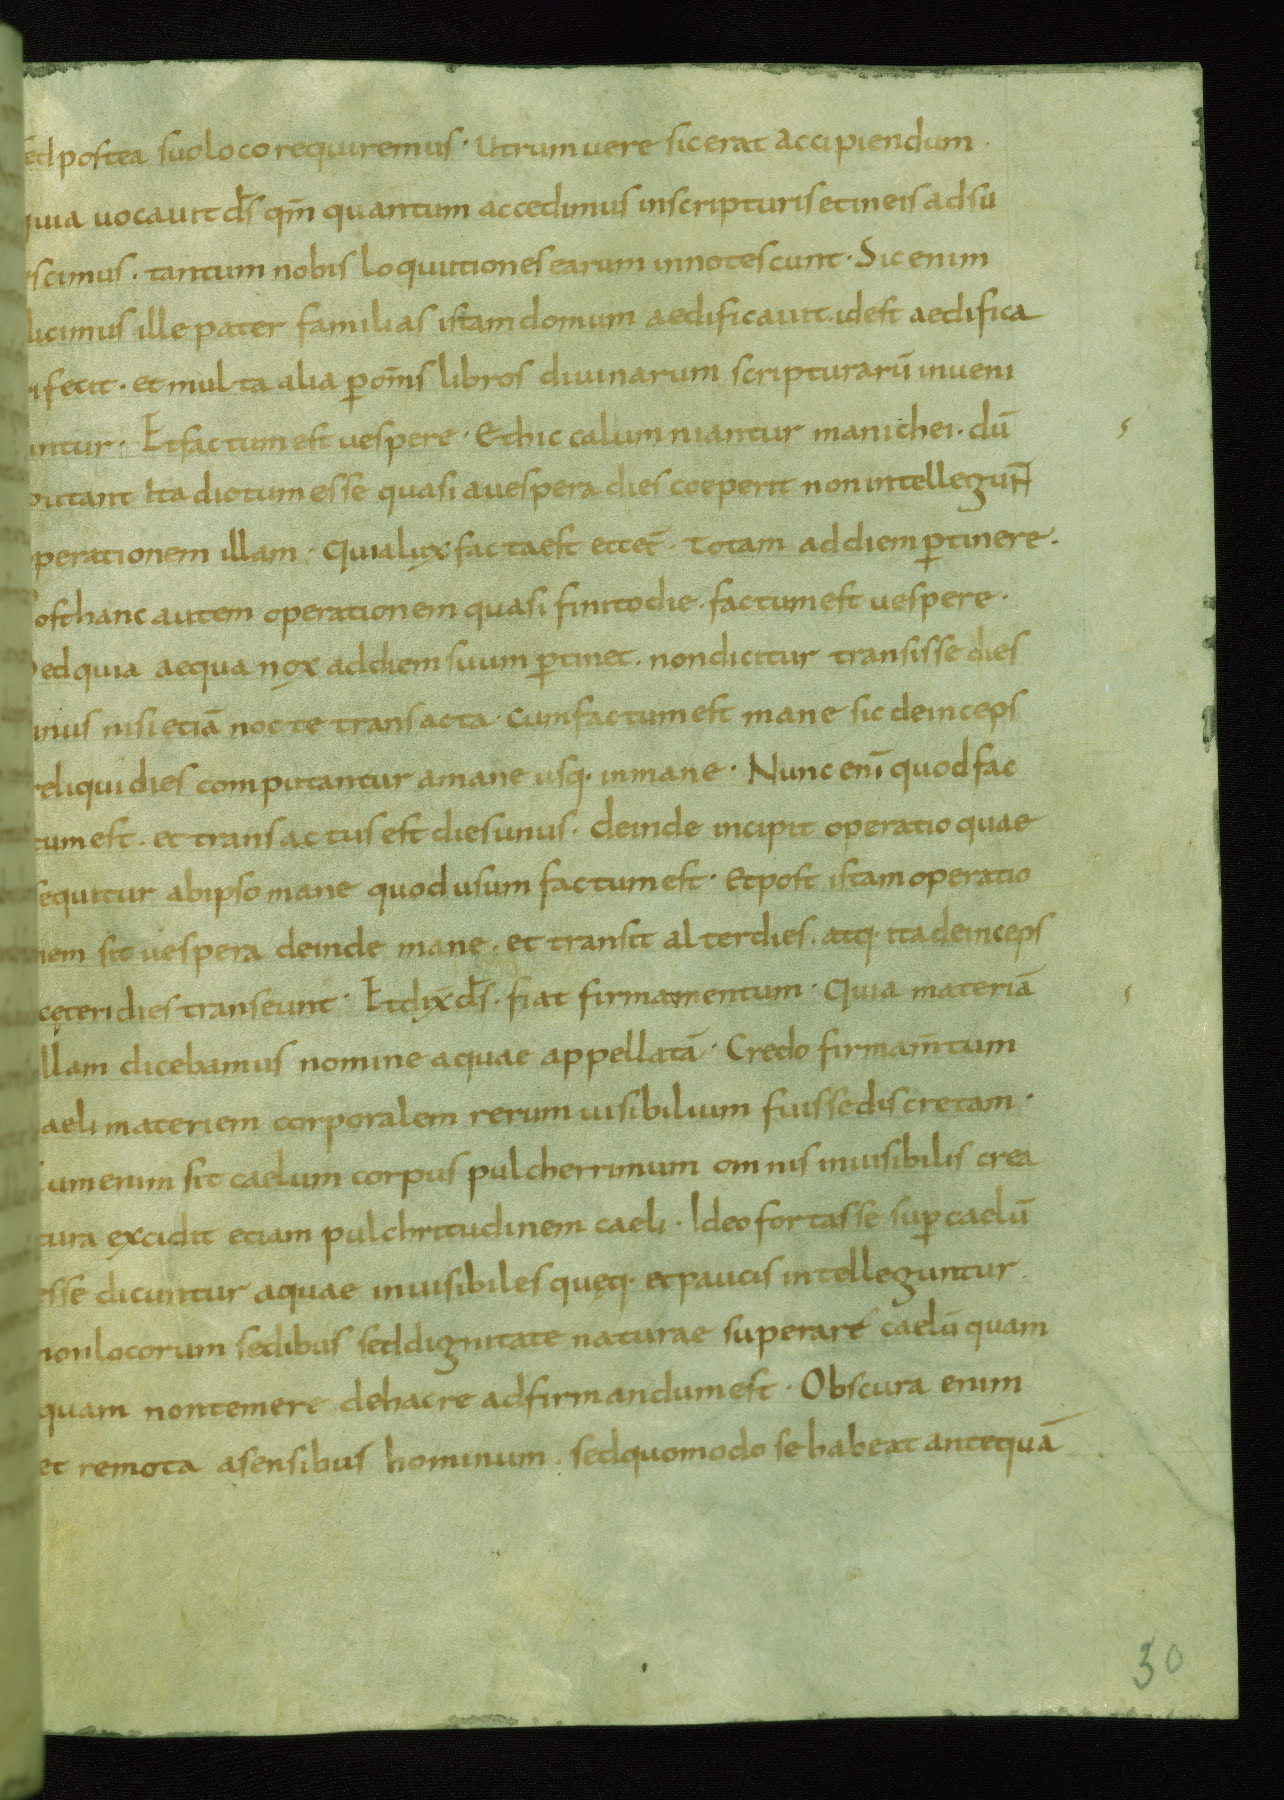 sed postea suo loco requiremus · utrum uere sic erat accipiendum ·
quia uocauit d̄s qm̄ quantum accedimus in scripturis et in eis adsu
escimus · tantum nobis loquutiones earum innotescunt · Sic enim
dicimus ille pater familias istam domum aedificauit · id est aedifica
ri fecit · et multa alia ꝑ om̄s libros diuinarum scripturarū inueni
untur · Et factum est uespere · Et hic calumniantur manichei · dū
putant ita dictum esse quasi a uespera dies coeperit non intellegun̄t
operationem illam · Quia lux facta est et cet̄ · totam ad diem ꝑtinere ·
Post hanc autem operationem quasi finito die · factum est uespere ·
Sed quia aequa nox ad diem suum ꝑtinet · non dicitur transisse dies
unus nisi etiā nocte transacta · cum factum est mane sic deinceps
reliqui dies computantur a mane usq· in mane · Nunc enī quod fac
tum est · et transactus est dies unus · deinde incipit operatio quae
sequitur ab ipso mane quod usum factum est · Et post istam operatio
nem sit uespera deinde mane · et transit alter dies · atq· ita deinceps
cęteri dies transeunt · Et dix̄ d̄s · fiat firmamentum · Quia materiā
illam dicebamus nomine aquae appellatā · Credo firmam̄tum
caeli materiem corporalem rerum uisibilium fuisse discretam ·
Cum enim sit caelum corpus pulcherrimum omnis inuisibilis crea
tura excidit etiam pulchritudinem caeli · Ideo fortasse suꝑ caelū
esse dicuntur aquae inuisibiles quęq· et paucis intelleguntur
non locorum sedibus sed dignitate naturae superare caelū quam
quam non temere de hac re adfirmandum est · Obscura enim
et remota a sensibus hominum · sed quomodo se habeat antequā
30